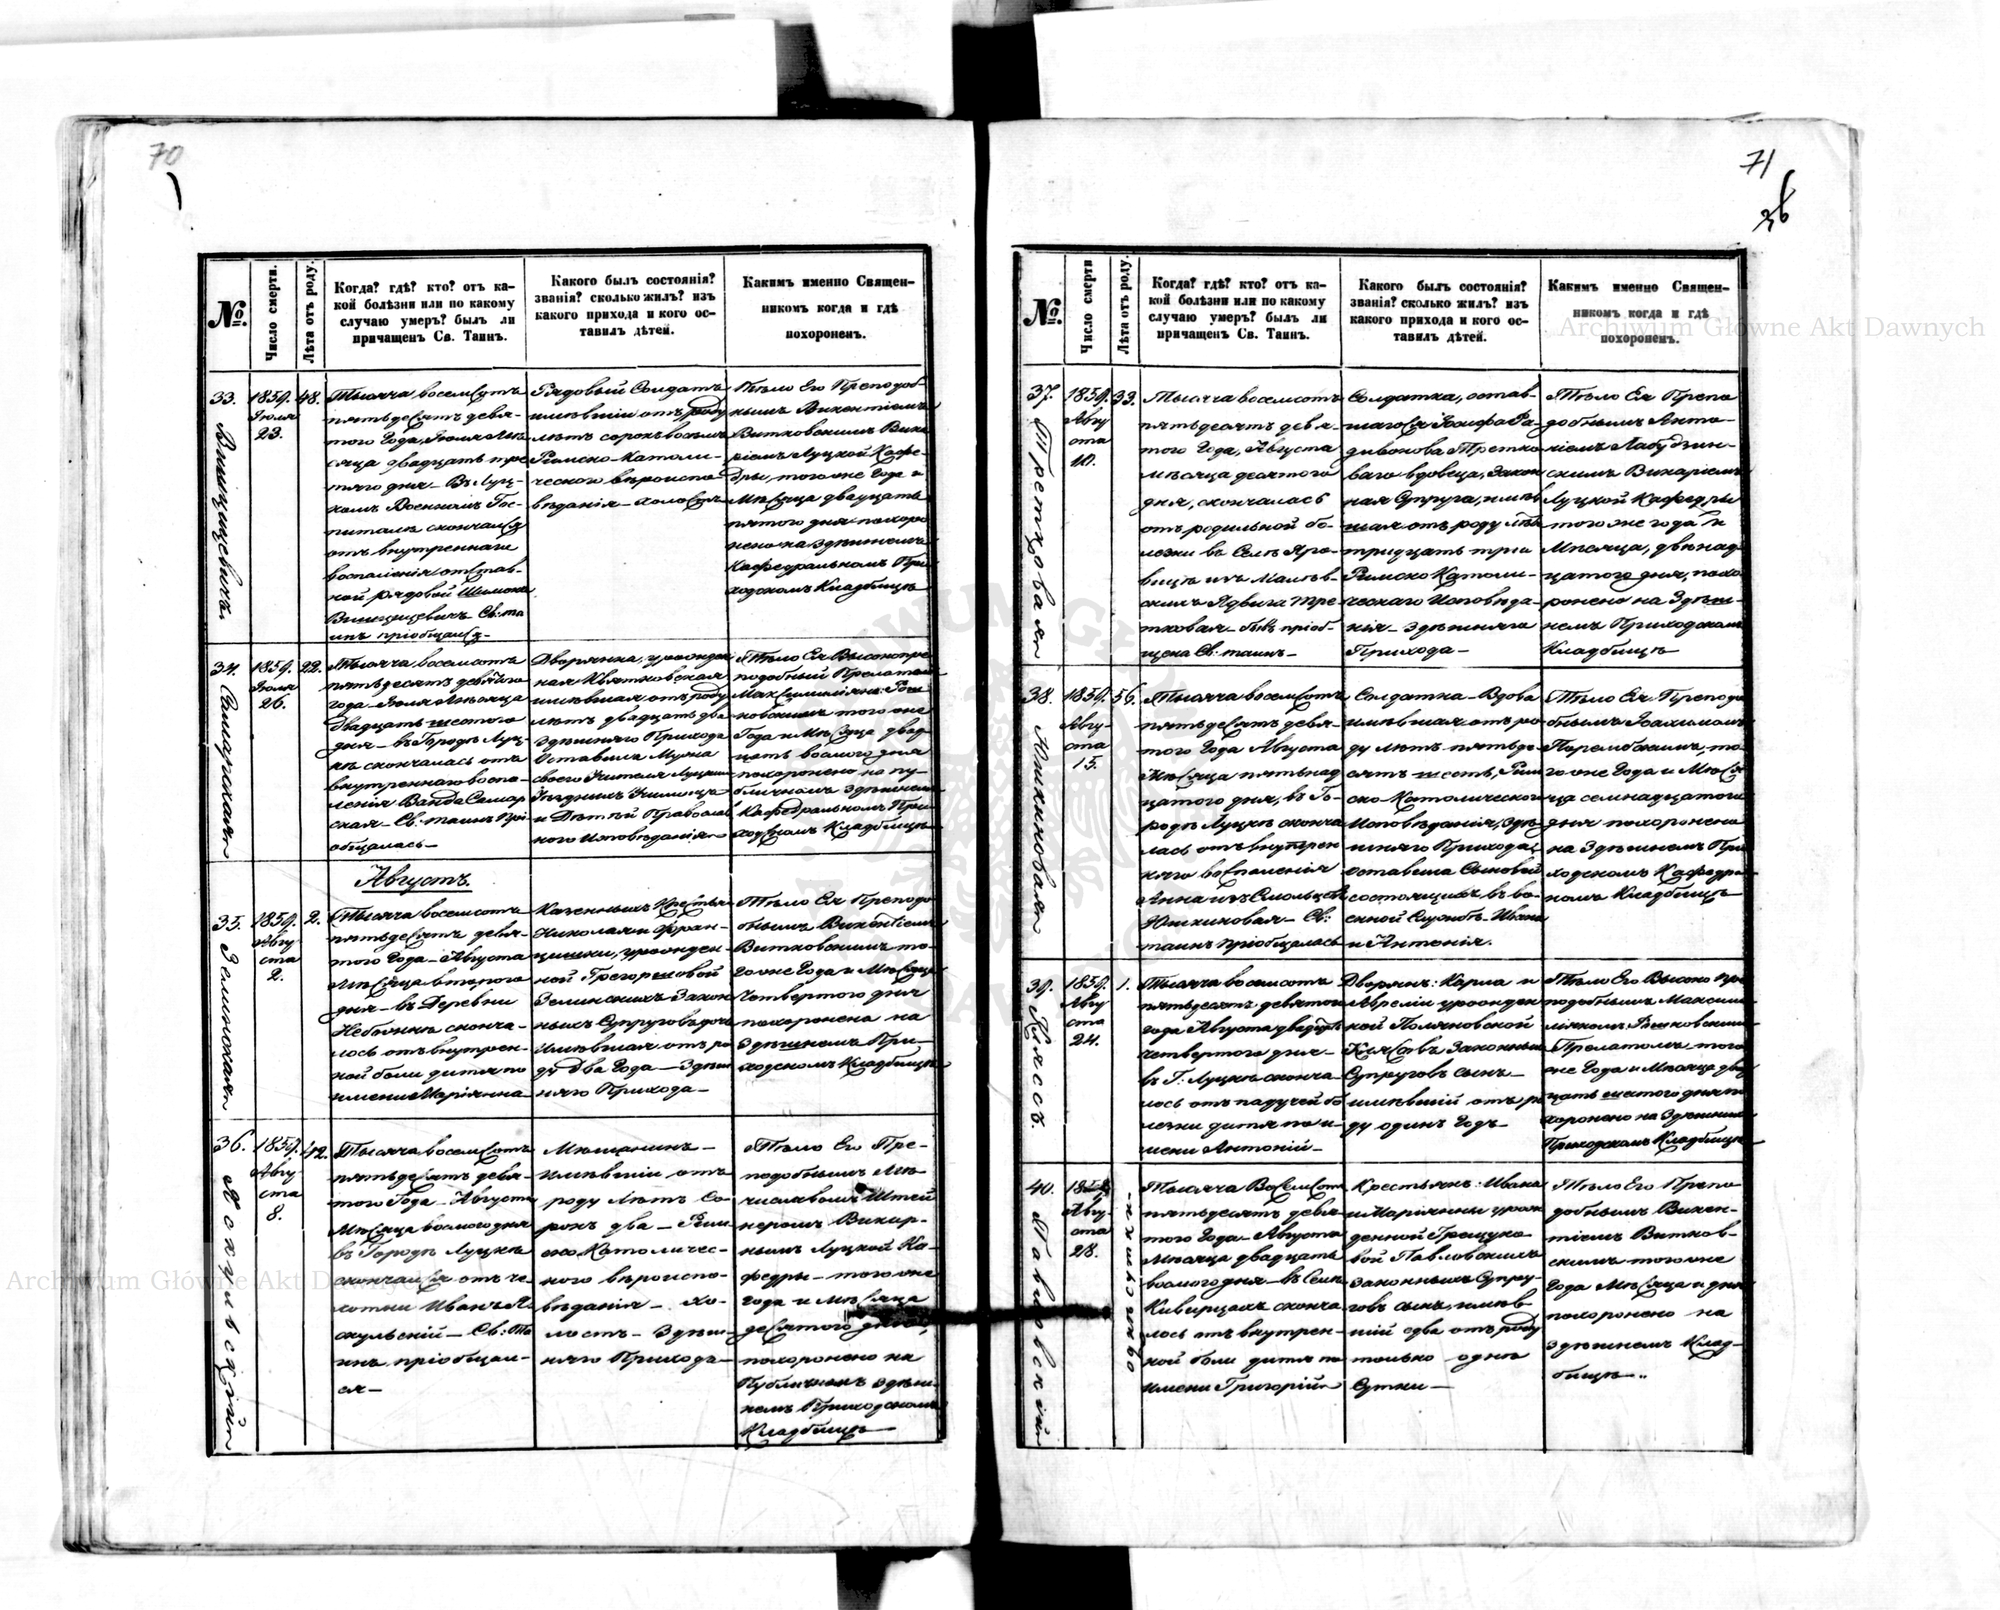 70
№
Число смерти.
Лѣта отъ роду.
Когда? гдѣ? кто? отъ ка-
кой болѣзни или по какому
случаю умеръ? былъ ли
причащенъ Св. Таинъ.
Какого былъ состоянія?
званія? сколько жилъ? изъ
какого прихода и кого ос-
тавилъ дѣтей.
Какимъ именно Священ-
никомъ когда и гдѣ
похороненъ.
33.
1859.
Іюля
23.
48.
Тысяча восемсотъ
пятьдесятъ девя-
того Года, Іюля Мѣ-
сяца двадцать тре
тяго дня – Въ Луц-
комъ Военномъ Гос-
питалѣ скончался
отъ внутренняго
воспаленія отстав-
ной рядовой
Св: та
инъ пріобщался
Рядовый Солдатъ
имѣвшій отъ роду
лѣтъ сорокъ восемь
Римско-Католи-
ческого вѣроиспо-
вѣданія – холостъ
Тѣло Его Преподоб-
нымъ Викентіемъ
Витковскимъ Вика
ріемъ Луцкой Кафе-
дры, того же Года и
Мѣсяца двадцать
пятого дня похоро
нено на здѣшнемъ
Кафедральномъ При
ходскомъ Кладбищѣ
34.
Самарская
1859.
Іюля
26.
22.
Тысяча восемсотъ
пятьдесятъ девятого
года Іюля Мѣсяца
Двадцать шестого
дня – въ Городѣ Луц-
кѣ скончалась отъ
внутренняго воспа-
ленія Ванда Самар
ская – Св: таинъ прі
общалась –
Дворянка, урожден
ная Квятковская
имѣвшая отъ роду
лѣтъ двадцать два
здѣшняго Прихода
Оставила Мужа
своего Учителя Луцкихъ
Уѣздныхъ Училищъ
и Дѣтей Православ
ного Исповѣданія
Тѣло Ея Высокопре
подобный Прелатомъ
того же
Года и Мѣсяца двад
цать восмого дня
похоронено на пу-
бличномъ здѣшнемъ
Кафедральномъ При
ходскомъ Кладбищѣ
Августъ.
35.
Зелинская
1859.
Авгу
ста
2.
2.
Тысяча восемсотъ
пятьдесятъ девя-
того Года – Августа
Мѣсяца второго
дня – въ Деревни
сконча-
лось отъ внутрен-
ной боли дитя по
имени Маріянна
Казенныхъ Крестьянъ
Николая и Фран-
цишки, урожден-
ной Грегоршовой
Зелинскихъ Закон
ныхъ Супруговъ дочь
имѣвшая отъ ро
ду Два Года – Здѣш
няго Прихода –
Тѣло Ея Преподо
бнымъ Викентіемъ
Витковскимъ то-
го же Года и Мѣсяца
Четвертого дня
похоронена на
Здѣшнемъ При-
ходскомъ Кладбищѣ
36.
Покульскій
1859.
Авгу
ста
8.
42.
Тысяча восемсотъ
пятьдесятъ девя-
того Года – Августа
Мѣсяца восмого дня
въ Городѣ Луцкѣ
скончался отъ че-
хотки Иванъ По
кульскій – Св: Та
инъ пріобщал-
ся –
Мѣщанинъ –
имѣвшій отъ
роду Лѣтъ Со-
рокъ два – Рим-
ско Католичес-
кого вѣроиспо-
вѣданія – Хо-
лостъ – Здѣш-
няго Прихода –
Тѣло Его Пре-
подобнымъ Мѣ
числавомъ Штей
неромъ Викар-
нымъ Луцкой Ка-
федры – того же
Года и Мѣсяца
десятого дня,
похоронено на
Публичномъ здѣш-
немъ Приходскомъ
Кладбищѣ
71
36
№
Число смерти
Лѣта отъ роду.
Когда? гдѣ? кто? отъ ка-
кой болѣзни или по какому
случаю умеръ? былъ ли
причащенъ Св. Таинъ.
Какого былъ состоянія?
званія? сколько жилъ? изъ
какого прихода и кого ос-
тавилъ дѣтей.
Какимъ именно Священ-
никомъ когда и гдѣ
похороненъ.
37.
1859.
Авгу
ста
10.
33.
Тысяча восемсотъ
пятьдесятъ девя-
того Года, Августа
Мѣсяца десятого
дня, скончалась
отъ родильной бо-
лезни въ Селѣ Яро-
вищѣ изъ
Ядвига Тре
тковая – бывъ пріоб-
щена Св: таинъ –
Солдатка, остав-
шагося Іозефа Ра-
дивонова Третко
ваго вдовца, закон
ная Супруга, имѣв
шая отъ роду лѣтъ
тридцать три
Римско Католи-
ческаго Исповѣда-
нія – здѣшняго
Прихода –
Тѣло Ея Препо
добнымъ Анто-
ніемъ Лабудзин-
скимъ Викаріемъ
Луцкой Кафедры
того же года и
Мѣсяца, двѣнад
цатого дня, похо
ронено на Здѣш-
немъ Приходскомъ
Кладбищѣ
38.
Юшкиновая
1859.
Авгу-
ста
15.
56.
Тысяча восемсотъ
пятьдесятъ девя-
того Года Августа
Мѣсяца пятьнад
цатого дня, въ Го-
родѣ Луцкѣ сконча
лась отъ внутрен
няго воспаленія
Анна изъ
Юшкиновая – Св:
таинъ пріобщалась
Солдатка – Вдова
имѣвшая отъ ро
ду лѣтъ пятьде
сятъ шесть, Рим
ско-Католического
Исповѣданія, здѣ
шняго Прихода,
оставила Сыновей
состоящихъ въ во-
енной Службѣ – Ивана
и Антонія.
Тѣло Ея Преподо
бнымъ Іоахимомъ
то
го же Года и Мѣся
ца семнадцатого
дня похоронена
на Здѣшнемъ При
ходскомъ Кафедра
номъ Кладбищѣ
39.
Клссъ
1859.
Авгу
ста
24.
1.
Тысяча восемсотъ
пятьдесятъ девятого
года Августа двадцать
четвертого дня –
въ Г: Луцкѣ сконча
лось отъ падучей бо
лезни дитя по и-
мени Антоній –
Дворянъ: Карла и
Авреліи урожден
ной Поляновской
Законныхъ
Супруговъ сынъ –
имѣвшій отъ ро
ду одинъ Годъ –
Тѣло Его Высоко пре
подобнымъ Максими-
ліяномъ
Прелатомъ – того
же Года и Мѣсяца два
цать шестого дня по
хоронено на Здѣшнемъ
Приходскомъ Кладбищѣ
40.
Павловскій
1859
Авгу-
ста
28.
Тысяча Восемсотъ
пятьдесятъ девя
того Года – Августа
Мѣсяца двадцать
восмого дня – въ Селѣ
Киверцахъ сконча
лось отъ внутрен-
ной боли дитя по
имени Григорій
Крестьянъ: Ивана
и Маріянны урож
денной Грещуко
вой Павловскихъ
законныхъ Супру-
говъ сынъ, имѣв
шій едва отъ роду
только одни
Сутки –
Тѣло Его Препо
добнымъ Викен-
тіемъ Витков-
скимъ того же
Года Мѣсяца и дня
похоронено на
здѣшнемъ Клад-
бищѣ..
Archiwum Główne Akt Dawnych
Archiwum Główne Akt Dawnych